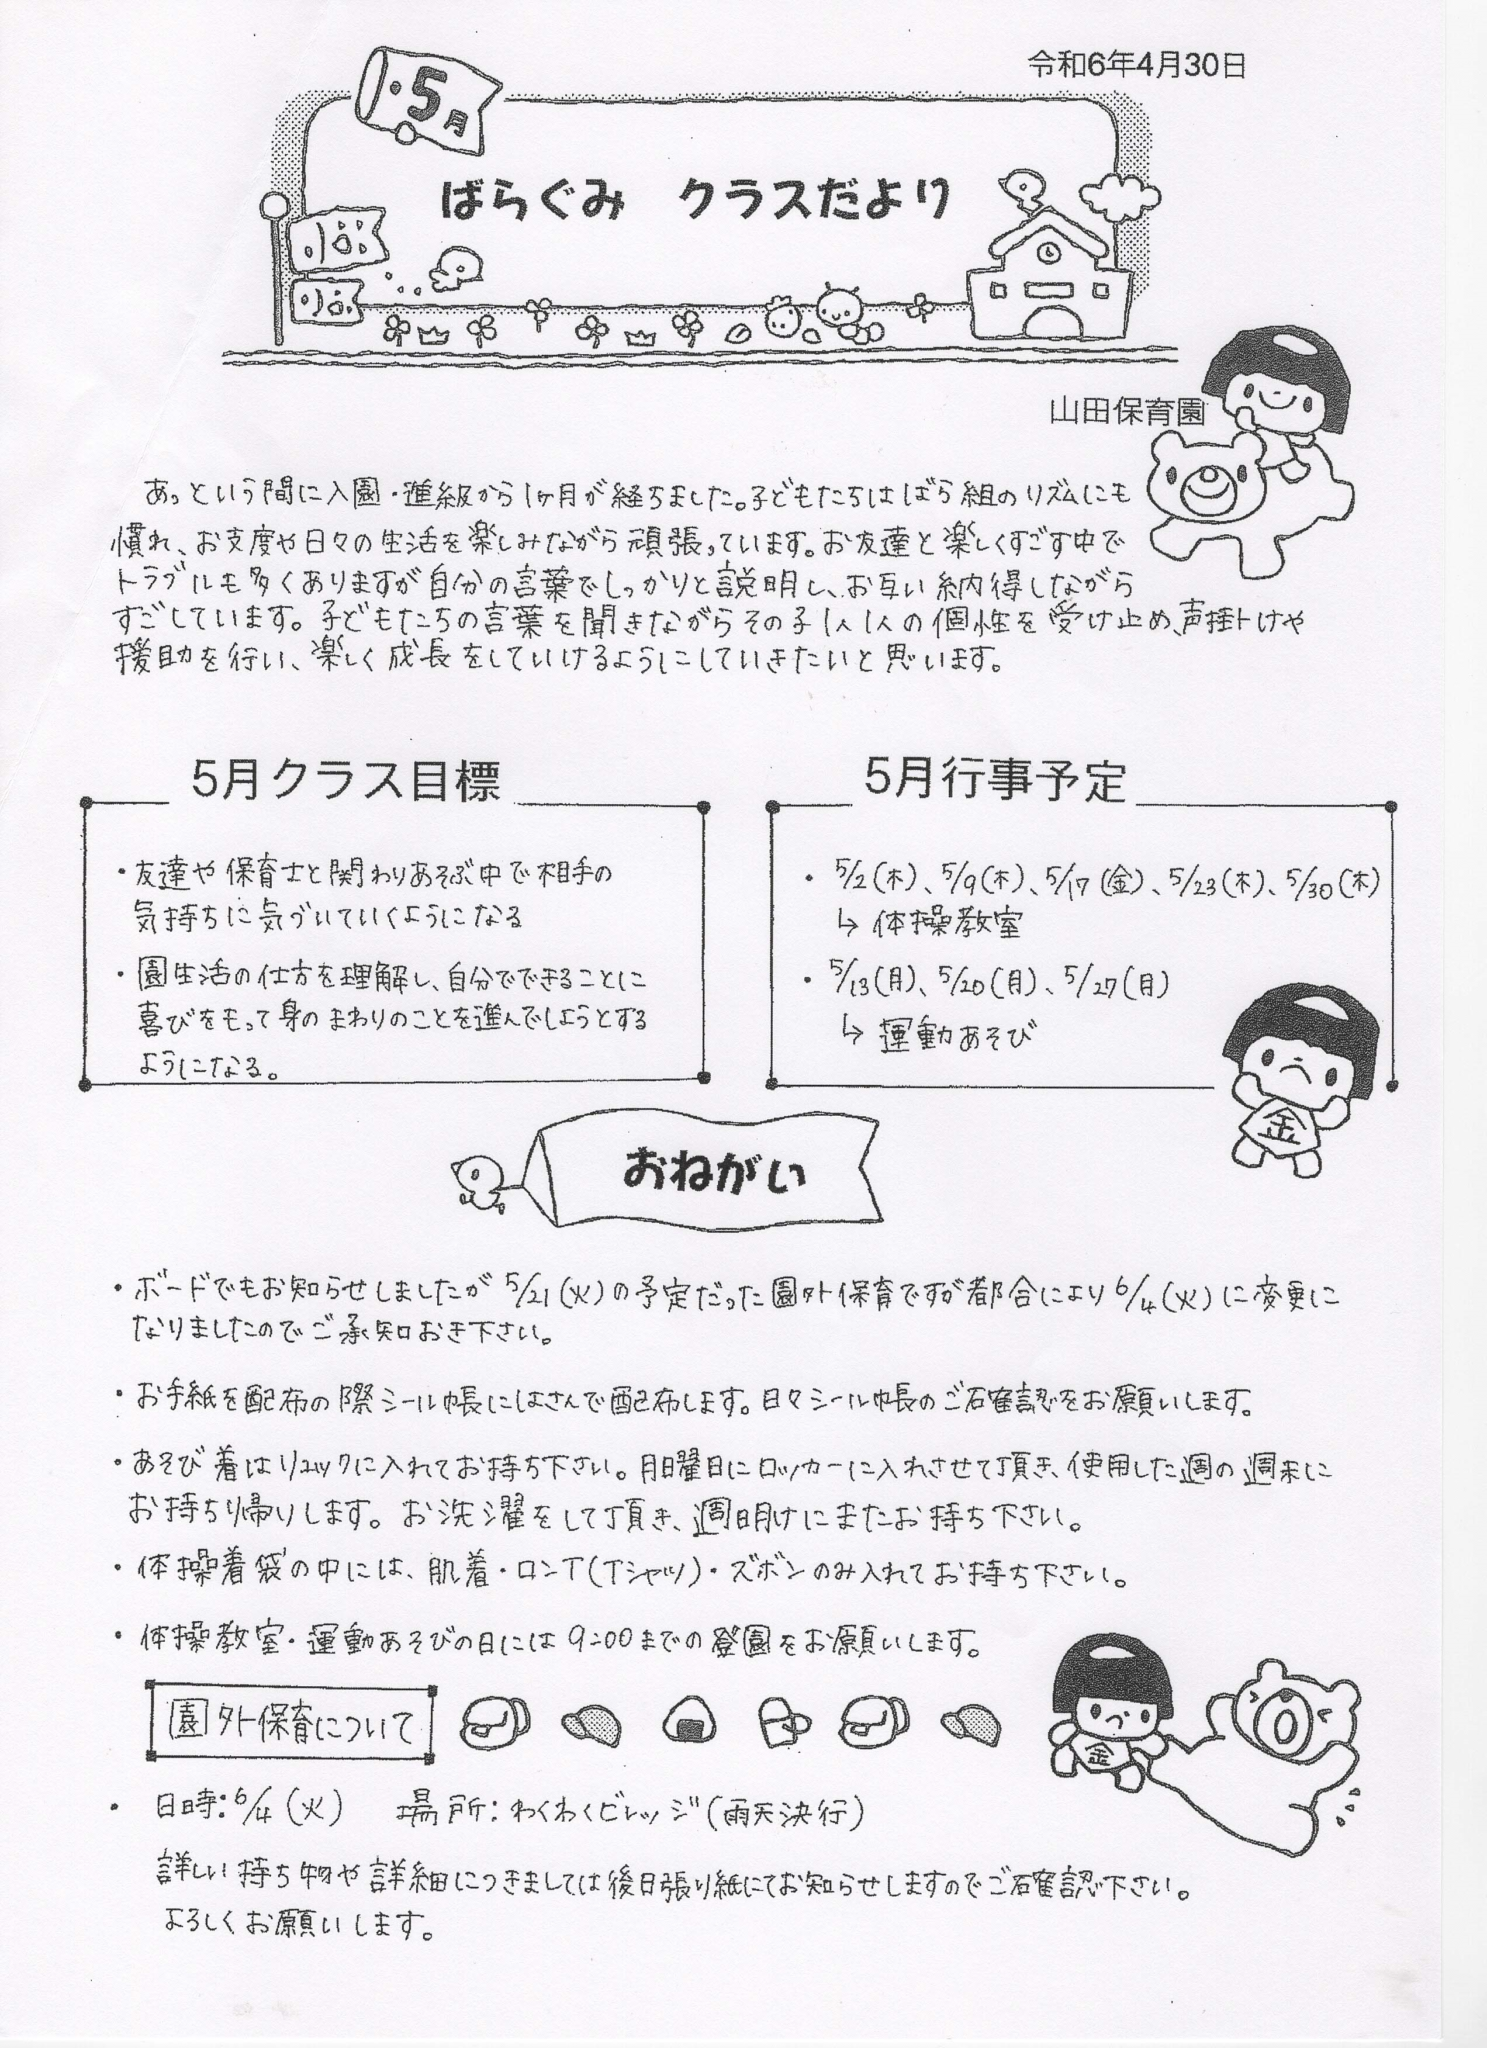 令和6年4月30日
5月
ばらぐみ クラスだより
山田保育園
あっという間に入園・進級から1ヶ月が経ちました。子どもたちはばら組のリズムにも
慣れ、お支度や日々の生活を楽しみながら頑張っています。お友達と楽しくすごす中で
トラブルも多くありますが自分の言葉でしっかりと説明し、お互い納得しながら
すごしています。子どもたちの言葉を聞きながらその子1人1人の個性を受け止め、声掛けや
援助を行い、楽しく成長をしていけるようにしていきたいと思います。
5月クラス目標
・友達や保育士と関わりあそぶ中で相手の
気持ちに気づいていくようになる
・園生活の仕方を理解し、自分でできることに
喜びをもって身のまわりのことを進んでしようとする
ようになる。
5月行事予定
・5/2(木)、5/9(木)、5/17(金)、5/23(木)、5/30(木)
↳ 体操教室
・5/13(月)、5/20(月)、5/27(月)
↳ 運動あそび
金
おねがい
・ボードでもお知らせしましたが5/21(火)の予定だった園外保育ですが都合により6/4(火)に変更に
なりましたのでご承知おき下さい。
・お手紙を配布の際シール帳にはさんで配布します。日々シール帳のご確認をお願いします。
・あそび着はリュックに入れてお持ち下さい。月曜日にロッカーに入れさせて頂き、使用した週の週末に
お持ち帰りします。お洗濯をして頂き、週明けにまたお持ち下さい。
・体操着袋の中には、肌着・ロンT(Tシャツ)・ズボンのみ入れてお持ち下さい。
・体操教室・運動あそびの日には9:00までの登園をお願いします。
園外保育について
金
・日時:6/4(火) 場所:わくわくビレッジ(雨天決行)
詳しい持ち物や詳細につきましては後日張り紙にてお知らせしますのでご確認下さい。
よろしくお願いします。